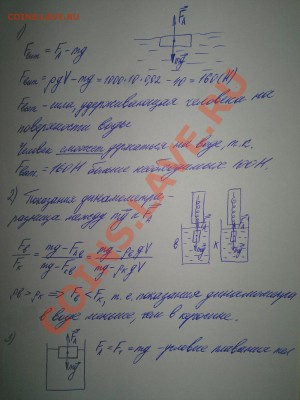 1)
F_A
mg
Fвып = F_A - mg
Fвып = ρgV - mg = 1000·10·0,02 - 40 = 160 (Н)
Fвып - сила, удерживающая человека на
поверхности воды
Человек сможет удержаться на воде, т.к.
Fвып = 160 Н больше необходимых 100 Н.
2) Показания динамометра -
разница между mg и F_A
F_в/F_к = (mg - F_Aв)/(mg - F_Aк) = (mg - ρ_в gV)/(mg - ρ_к gV)
в
к
ρ_в > ρ_к => F_в < F_к, т.е. показания динамометра
в воде меньше, чем в керосине.
3)
F_A
mg
F_A = F_т = mg - условие плавания тел
COINS.SAVE.RU